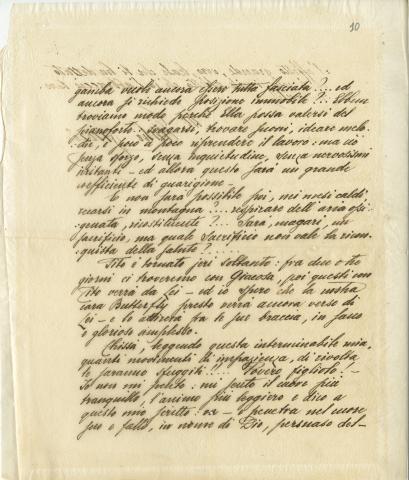 10
gamba vuole ancora essere tutta fasciata?... ed
ancora si richiede posizione immobile?... Ebbene
troviamo modo perchè Ella possa valersi del
pianoforte. Svagarsi, trovare suoni, ideare melo-
die, e poco a poco riprendere il lavoro: ma ciò
senza sforzo, senza inquietudine, senza nervosismi
irritanti - ed allora questo sarà un grande
coefficiente di guarigione. -
E non sarà possibile poi, nei mesi caldi
recarsi in montagna?... respirare dell'aria ossi-
genata, ricostituente? Sarà, magari, un
sacrificio, ma quale sacrificio non vale la ricon-
quista della salute?...
Tito è tornato ieri soltanto: fra due o tre
giorni ci troveremo con Giacosa, poi questi con
Tito verrà da Lei - ed io spero che la nostra
cara Butterfly presto verrà ancora verso di
Lei - e lo stretta fra le sue braccia, in santo
e glorioso amplesso.
Chissà, leggendo questa interminabile mia,
quanti movimenti di impazienza, di rivolta
le saranno sfuggiti?!... Povero figliolo! -
Io non mi pento: mi sento il cuore più
tranquillo, l'animo più leggero e dico a
questo mio scritto: va - penetra nel cuore
suo e fallo, in nome di Dio, persuaso del-